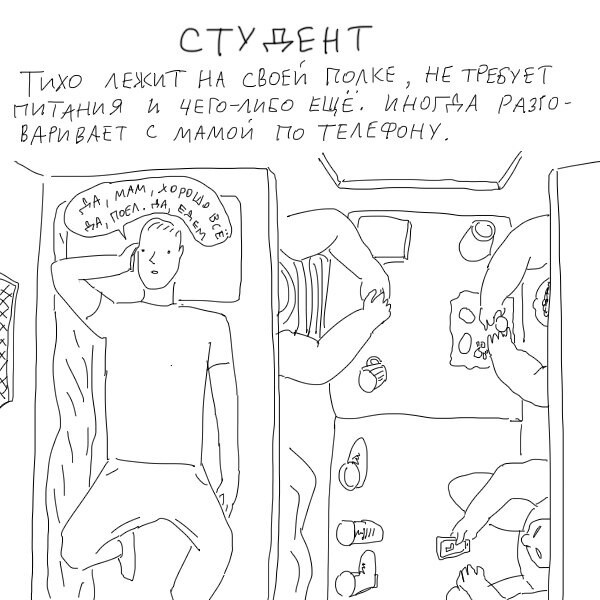 СТУДЕНТ
ТИХО ЛЕЖИТ НА СВОЕЙ ПОЛКЕ, НЕ ТРЕБУЕТ
ПИТАНИЯ И ЧЕГО-ЛИБО ЕЩЁ. ИНОГДА РАЗГО-
ВАРИВАЕТ С МАМОЙ ПО ТЕЛЕФОНУ.
ДА, МАМ, ХОРОШО ВСЁ
ДА, ПОЕЛ. ДА, ЕДЕМ